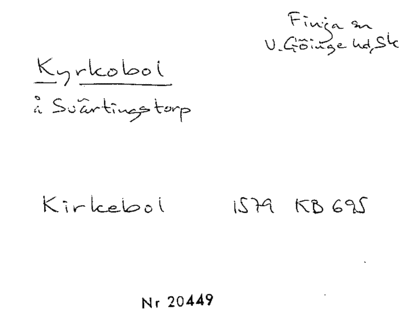 Finja sn
V. Göinge hd, Sk
Kyrkobol
å Svärtingstorp
Kirkebol 1579 KB 695
Nr 20449